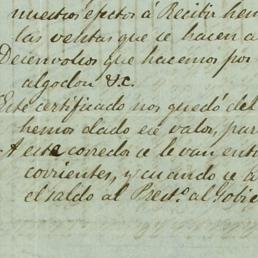 nuestros efectos á Recibir hem
las ventas que se hacen a
Desembolsos que hacemos por
algodon &c.
Este certificado nos quedó del
hemos dado ese valor, para
A este corredor le van ent
corrientes, y cuando se
el saldo al Prest.º al Gobie